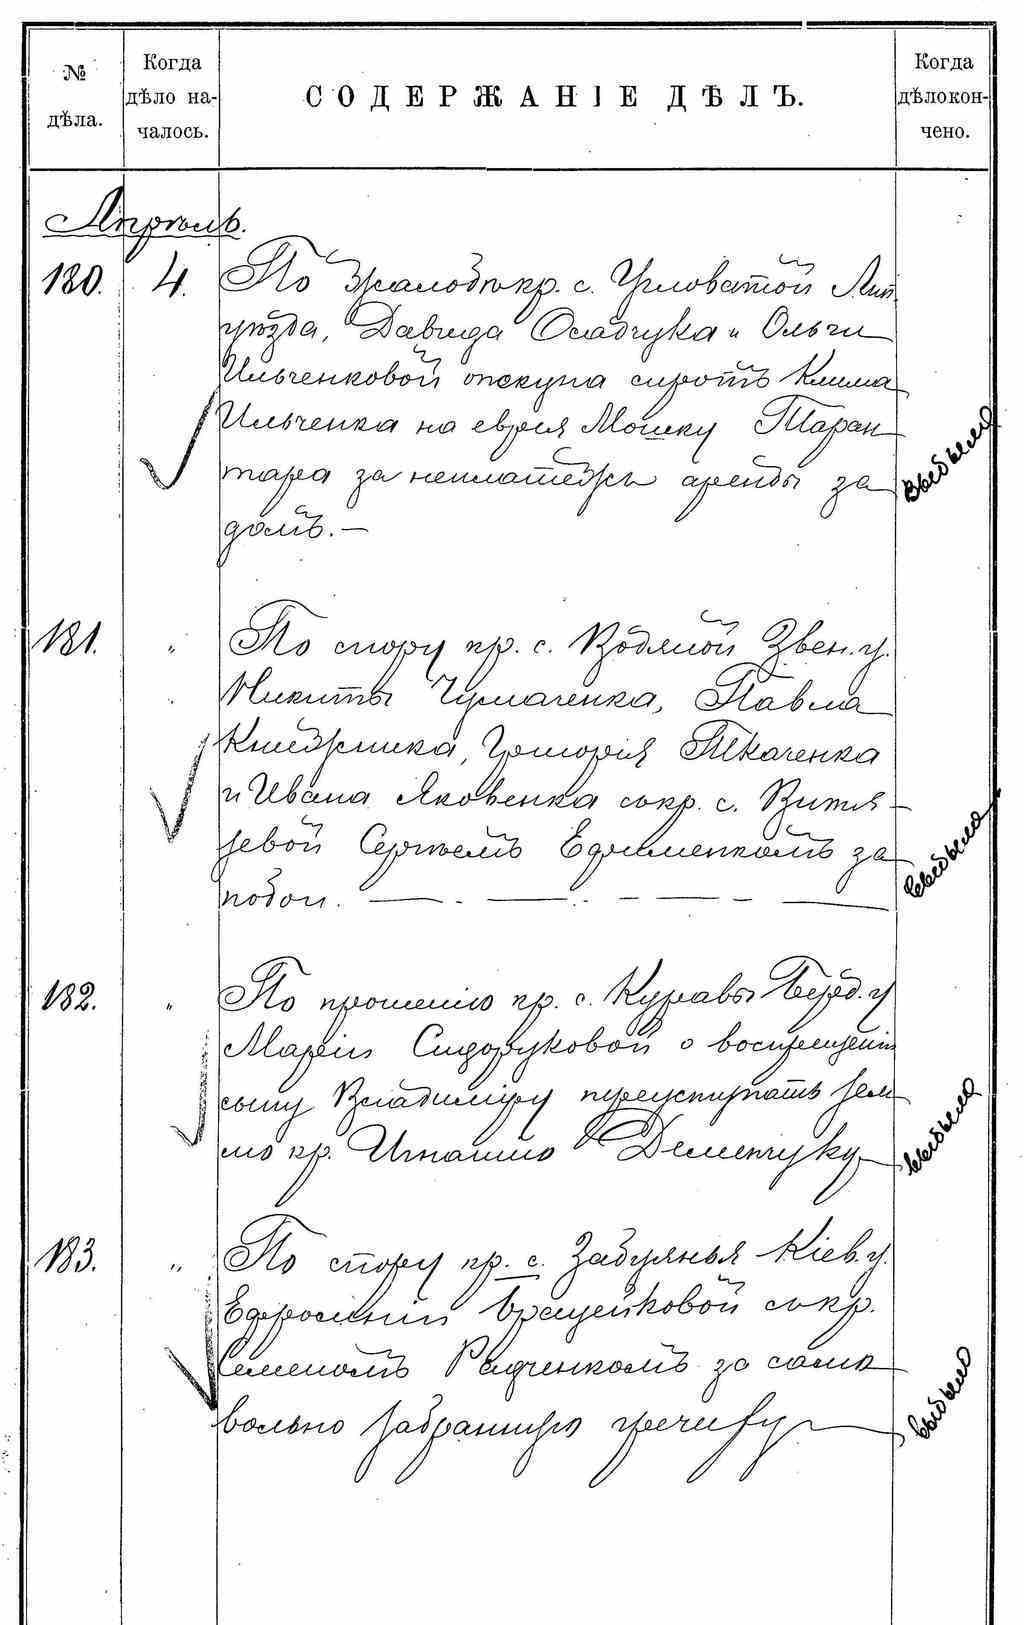 № дѣла.
Когда дѣло на-
чалось.
СОДЕРЖАНІЕ ДѢЛЪ.
Когда дѣло кон-
чено.
Апрѣль.
180. 4. По жалобѣ кр. с. Угловатой Лип.
уѣзда, Давида Осадчука и Ольги
Ильченковой опекуна сиротъ Клима
Ильченка на еврея Мошку Таран
тара за неплатежъ аренды за
домъ. —
Выбыло
181. " По спору кр. с. Водяной Звен. у.
Никиты Чумаченка, Павла
Книжника, Григорія Ткаченка
и Ивана Яковенка съ кр. с. Витя-
зевой Сергѣемъ Ефименкомъ за
побои. — . — . — — —
выбыло
182. " По прошенію кр. с. Куравы Берд. у
Маріи Сидоруковой о воспрещеніи
сыну Владиміру переуступать зем
лю кр. Игнатію Деменчуку
выбыло
183. " По спору кр. с. Забуянья Кіев. у.
Ефросиніи съ кр.
Семеномъ Радченкомъ за само
вольно забранную гречиху
выбыло